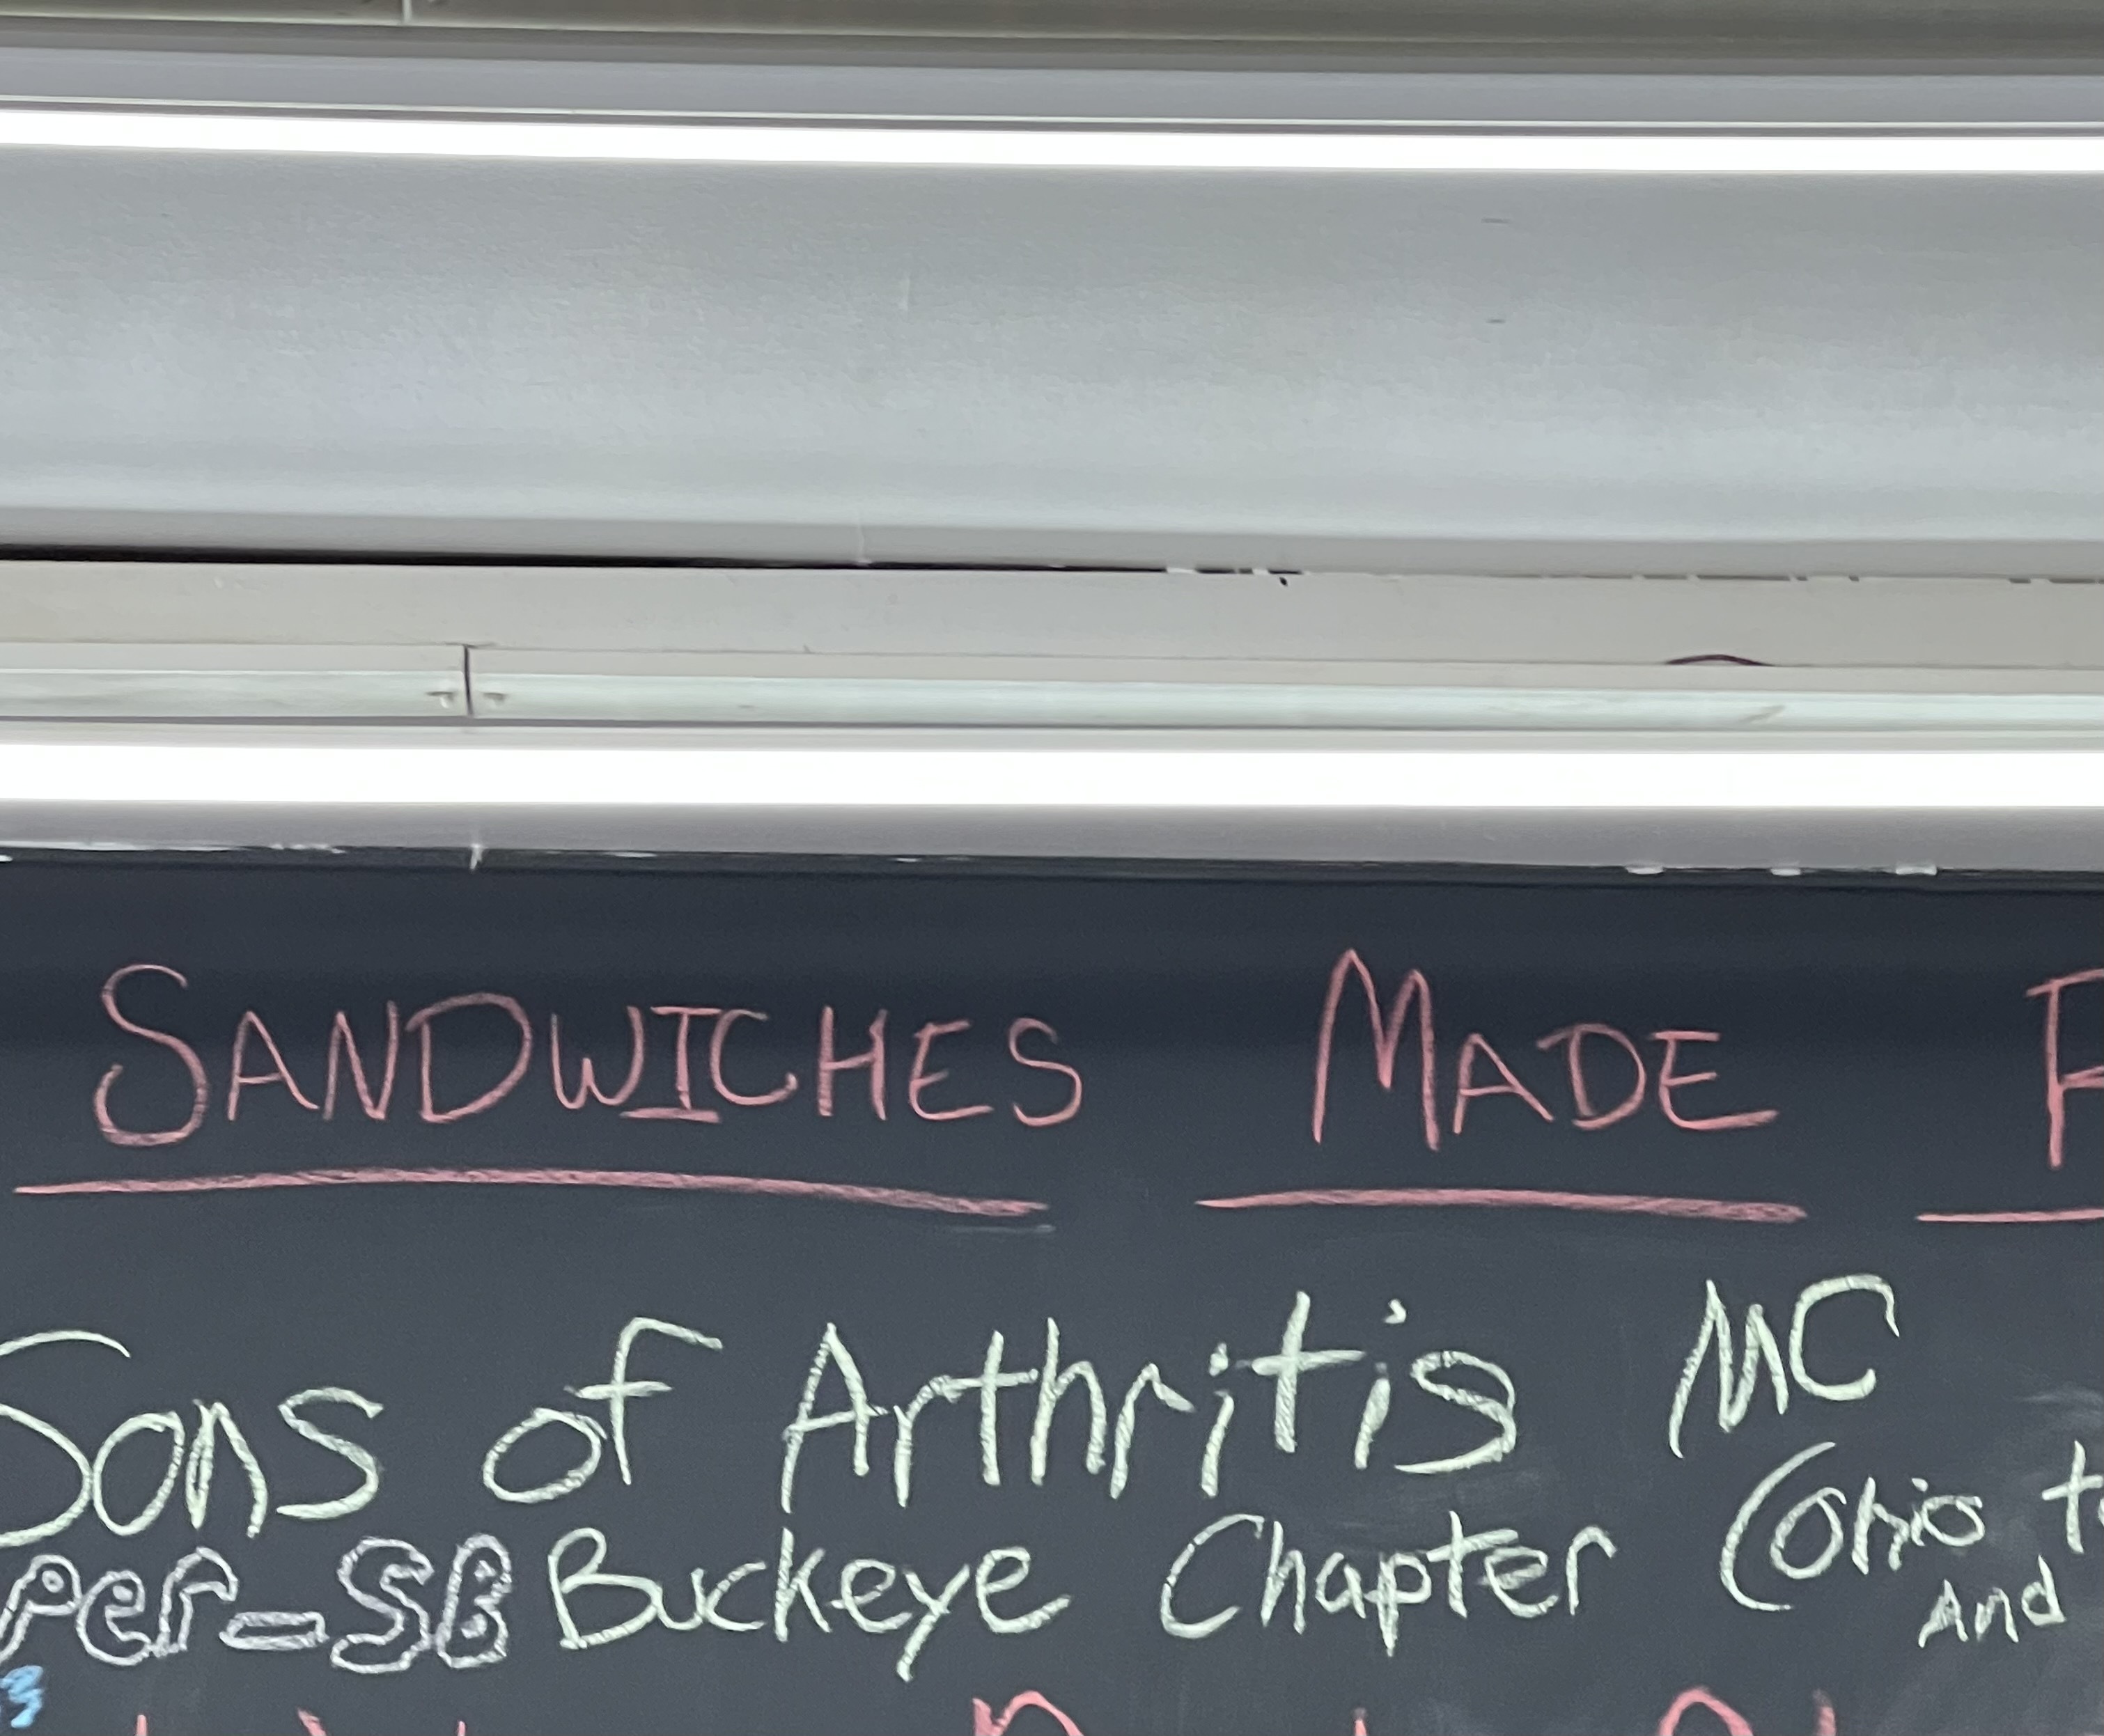 SANDWICHES MADE
Sons of Arthritis MC
Buckeye Chapter (Ohio
per-SB And